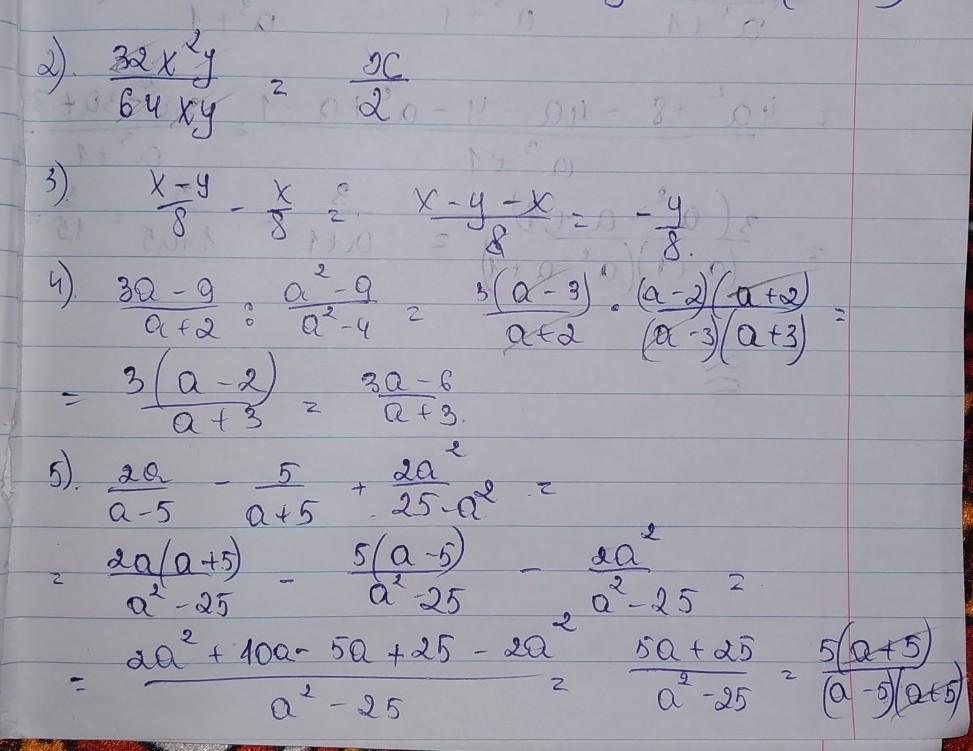 2). 32x²y / 64xy = x / 2
3) (x - y) / 8 - x / 8 = (x - y - x) / 8 = - y / 8.
4). (3a - 9) / (a + 2) : (a² - 9) / (a² - 4) = 3(a - 3) / (a + 2) · (a - 2)(a + 2) / (a - 3)(a + 3) =
= 3(a - 2) / (a + 3) = (3a - 6) / (a + 3).
5). 2a / (a - 5) - 5 / (a + 5) + 2a² / (25 - a²) =
= 2a(a + 5) / (a² - 25) - 5(a - 5) / (a² - 25) - 2a² / (a² - 25) =
= (2a² + 10a - 5a + 25 - 2a²) / (a² - 25) = (5a + 25) / (a² - 25) = 5(a + 5) / (a - 5)(a + 5)